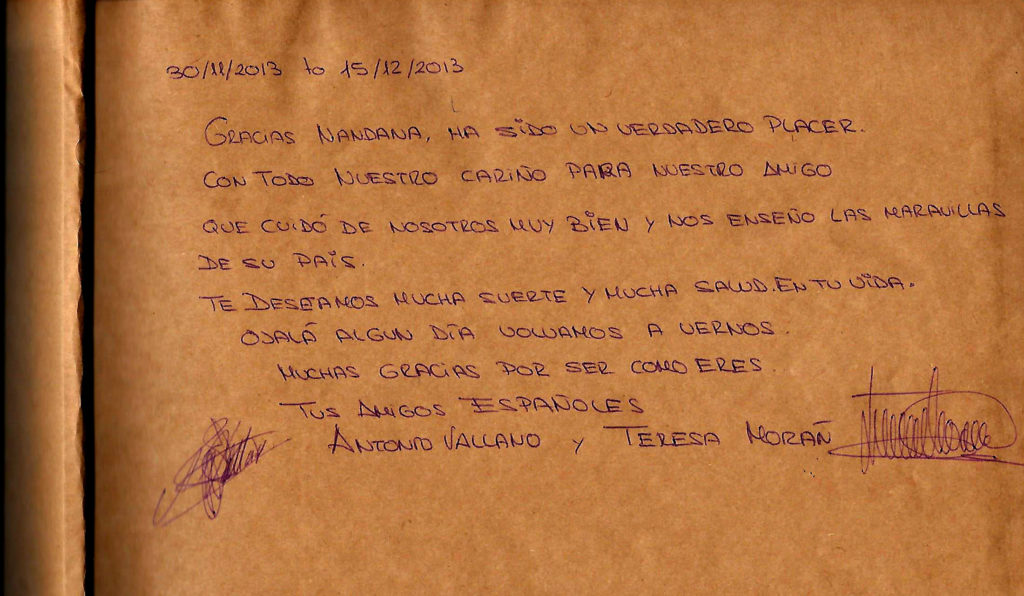 30/11/2013 to 15/12/2013
GRACIAS NANDANA, HA SIDO UN VERDADERO PLACER.
CON TODO NUESTRO CARIÑO PARA NUESTRO AMIGO
QUE CUIDÓ DE NOSOTROS MUY BIEN Y NOS ENSEÑO LAS MARAVILLAS
DE SU PAÍS.
TE DESEAMOS MUCHA SUERTE Y MUCHA SALUD. EN TU VIDA.
OJALÁ ALGUN DÍA VOLVAMOS A VERNOS.
MUCHAS GRACIAS POR SER COMO ERES.
TUS AMIGOS ESPAÑOLES
ANTONIO VALLANO Y TERESA MORAÑ